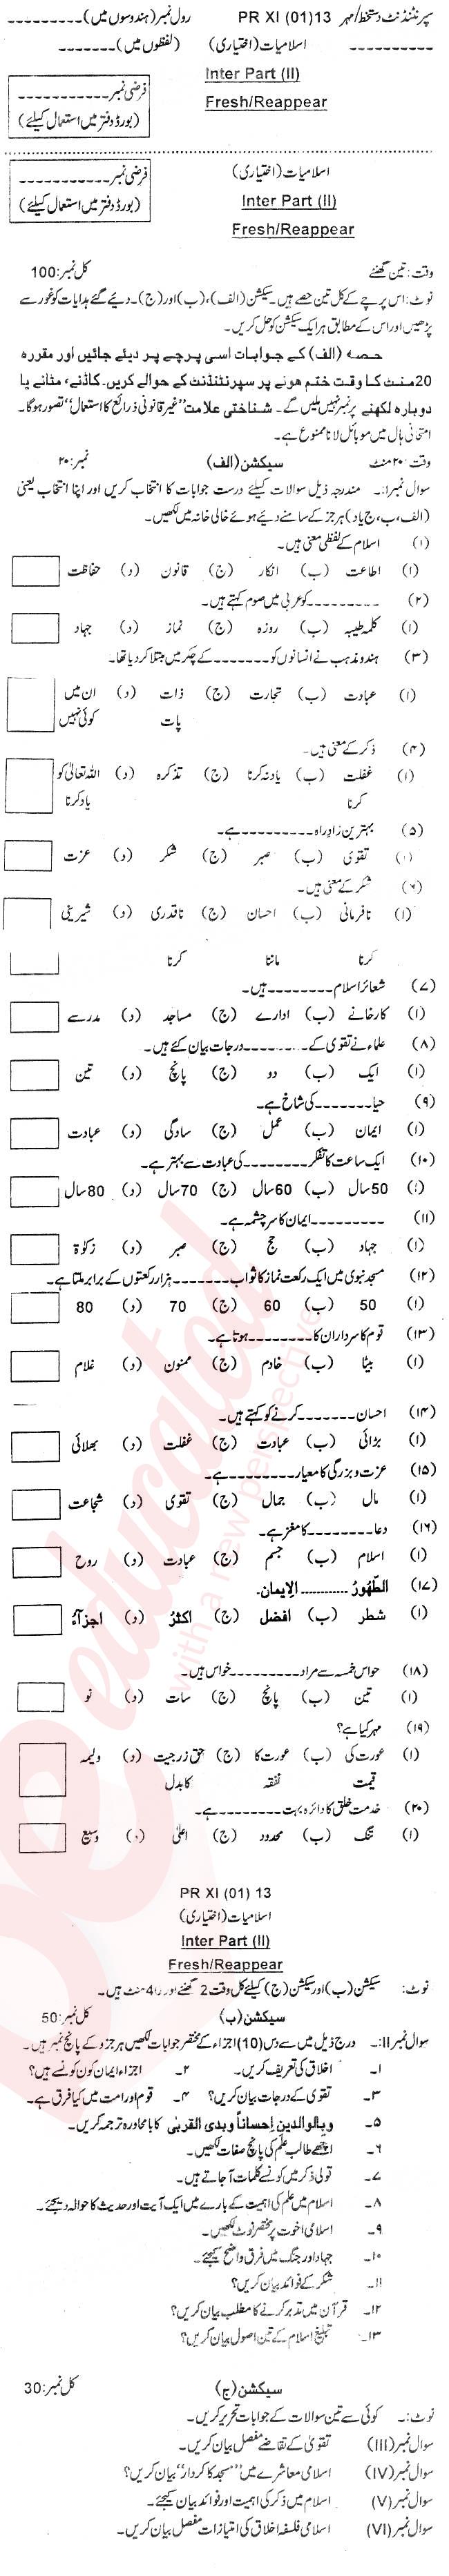 سپرنٹنڈنٹ دستخط/مہر PR XI (01)13 رول نمبر (ہندسوں میں)-----------
---------- اسلامیات (اختیاری) (لفظوں میں)-------
Inter Part (II)
Fresh/Reappear
فرضی نمبر-----------
(بورڈ دفتر میں استعمال کیلئے)
اسلامیات (اختیاری)
Inter Part (II)
Fresh/Reappear
فرضی نمبر-----------
(بورڈ دفتر میں استعمال کیلئے)
وقت: تین گھنٹے کل نمبر: 100
نوٹ: اس پرچے کے کل تین حصے ہیں۔ سیکشن (الف)، (ب) اور (ج)۔ دیئے گئے ہدایات کو غور سے
پڑھیں اور اس کے مطابق ہر ایک سیکشن کو حل کریں۔
حصہ (الف) کے جوابات اسی پرچے پر دیئے جائیں اور مقررہ
20 منٹ کا وقت ختم ہونے پر سپرنٹنڈنٹ کے حوالے کریں۔ کاٹنے، مٹانے یا
دوبارہ لکھنے پر نمبر نہیں ملیں گے۔ شناختی علامت "غیر قانونی ذرائع کا استعمال" تصور ہوگا۔
امتحانی ہال میں موبائل لانا ممنوع ہے۔
وقت: ۲۰ منٹ سیکشن (الف) نمبر: ۲۰
سوال نمبرI:۔ مندرجہ ذیل سوالات کیلئے درست جوابات کا انتخاب کریں اور اپنا انتخاب یعنی
(الف، ب، ج یا د) ہر جز کے سامنے دیئے ہوئے خالی خانہ میں لکھیں۔
(۱) اسلام کے لفظی معنی ہیں۔
(ا) اطاعت (ب) انکار (ج) قانون (د) حفاظت
(۲) ---------کو عربی میں صوم کہتے ہیں۔
(ا) کلمہ طیبہ (ب) روزہ (ج) نماز (د) جہاد
(۳) ہندو مذہب نے انسانوں کو-------کے چکر میں مبتلا کر دیا تھا۔
(ا) عبادت (ب) تجارت (ج) ذات (د) ان میں
پات کوئی نہیں
(۴) ذکر کے معنی ہیں۔
(ا) غفلت (ب) یاد نہ کرنا (ج) تذکرہ (د) اللہ تعالیٰ کو
کرنا یاد کرنا
(۵) بہترین زادِ راہ---------ہے۔
(ا) تقویٰ (ب) صبر (ج) شکر (د) عزت
(۶) شکر کے معنی ہیں۔
(ا) نافرمانی (ب) احسان (ج) ناقدری (د) شیرینی
کرنا ماننا کرنا
(۷) شعائر اسلام--------ہیں۔
(ا) کارخانے (ب) ادارے (ج) مساجد (د) مدرسے
(۸) علماء نے تقویٰ کے---------درجات بیان کئے ہیں۔
(ا) ایک (ب) دو (ج) پانچ (د) تین
(۹) حیا-------کی شاخ ہے۔
(ا) ایمان (ب) عمل (ج) سادگی (د) عبادت
(۱۰) ایک ساعت کا تفکر---------کی عبادت سے بہتر ہے۔
(ا) 50 سال (ب) 60 سال (ج) 70 سال (د) 80 سال
(۱۱) ---------ایمان کا سرچشمہ ہے۔
(ا) جہاد (ب) حج (ج) صبر (د) زکوٰۃ
(۱۲) مسجد نبوی میں ایک رکعت نماز کا ثواب--------ہزار رکعتوں کے برابر ملتا ہے۔
(ا) 50 (ب) 60 (ج) 70 (د) 80
(۱۳) قوم کا سردار ان کا--------ہوتا ہے۔
(ا) بیٹا (ب) خادم (ج) ممنون (د) غلام
(۱۴) احسان-------کرنے کو کہتے ہیں۔
(ا) بڑائی (ب) عبادت (ج) غفلت (د) بھلائی
(۱۵) عزت و بزرگی کا معیار---------ہے۔
(ا) مال (ب) جمال (ج) تقویٰ (د) شجاعت
(۱۶) دعا---------کا مغز ہے۔
(ا) اسلام (ب) جسم (ج) عبادت (د) روح
(۱۷) الطُّهُورُ ............ الإیمان.
(ا) شطر (ب) افضل (ج) اکثرُ (د) اجزآءُ
(۱۸) حواس خمسہ سے مراد---------خواس ہیں۔
(ا) تین (ب) پانچ (ج) سات (د) نو
(۱۹) مہر کیا ہے؟
(ا) عورت کی (ب) عورت کا (ج) حق زوجیت (د) ولیمہ
قیمت نفقہ کا بدل
(۲۰) خدمت خلق کا دائرہ بہت---------ہے۔
(ا) تنگ (ب) محدود (ج) اعلیٰ (د) وسیع
PR XI (01) 13
اسلامیات (اختیاری)
Inter Part (II)
Fresh/Reappear
نوٹ: سیکشن (ب) اور سیکشن (ج) کیلئے کل وقت 2 گھنٹے اور 40 منٹ ہیں۔
سیکشن (ب) کل نمبر: 50
سوال نمبرII:۔ درج ذیل میں سے دس (10) اجزاء کے مختصر جوابات لکھیں ہر جزو کے پانچ نمبر ہیں۔
۱۔ اخلاق کی تعریف کریں۔ ۲۔ اجزاء ایمان کون کونسے ہیں؟
۳۔ تقویٰ کے درجات بیان کریں؟ ۴۔ قوم اور امت میں کیا فرق ہے۔
۵۔ وبالوالدین إحساناً وبذی القربیٰ کا بامحاورہ ترجمہ کریں۔
۶۔ اچھے طالب علم کی پانچ صفات لکھیں۔
۷۔ قولی ذکر میں کونسے کلمات آ جاتے ہیں۔
۸۔ اسلام میں علم کی اہمیت کے بارے میں ایک آیت اور حدیث کا حوالہ دیجئے۔
۹۔ اسلامی اخوت پر مختصر نوٹ لکھیں۔
۱۰۔ جہاد اور جنگ میں فرق واضح کیجئے۔
۱۱۔ شکر کے فوائد بیان کریں؟
۱۲۔ قرآن میں تدبر کرنے کا مطلب بیان کریں؟
۱۳۔ تبلیغ اسلام کے تین اصول بیان کریں؟
سیکشن (ج) کل نمبر: 30
نوٹ:۔ کوئی سے تین سوالات کے جوابات تحریر کریں۔
سوال نمبر (III) تقویٰ کے تقاضے مفصل بیان کریں۔
سوال نمبر (IV) اسلامی معاشرے میں "مسجد کا کردار" بیان کریں؟
سوال نمبر (V) اسلام میں ذکر کی اہمیت اور فوائد بیان کیجئے۔
سوال نمبر (VI) اسلامی فلسفہ اخلاق کی امتیازات مفصل بیان کریں۔
educated
with a new perspective